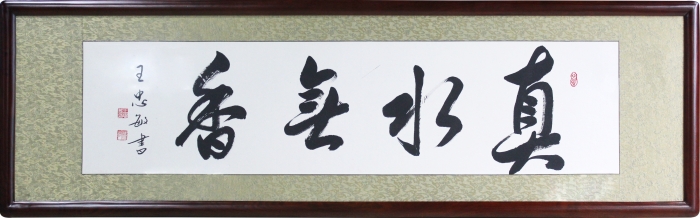 真水無香
王忠敏書